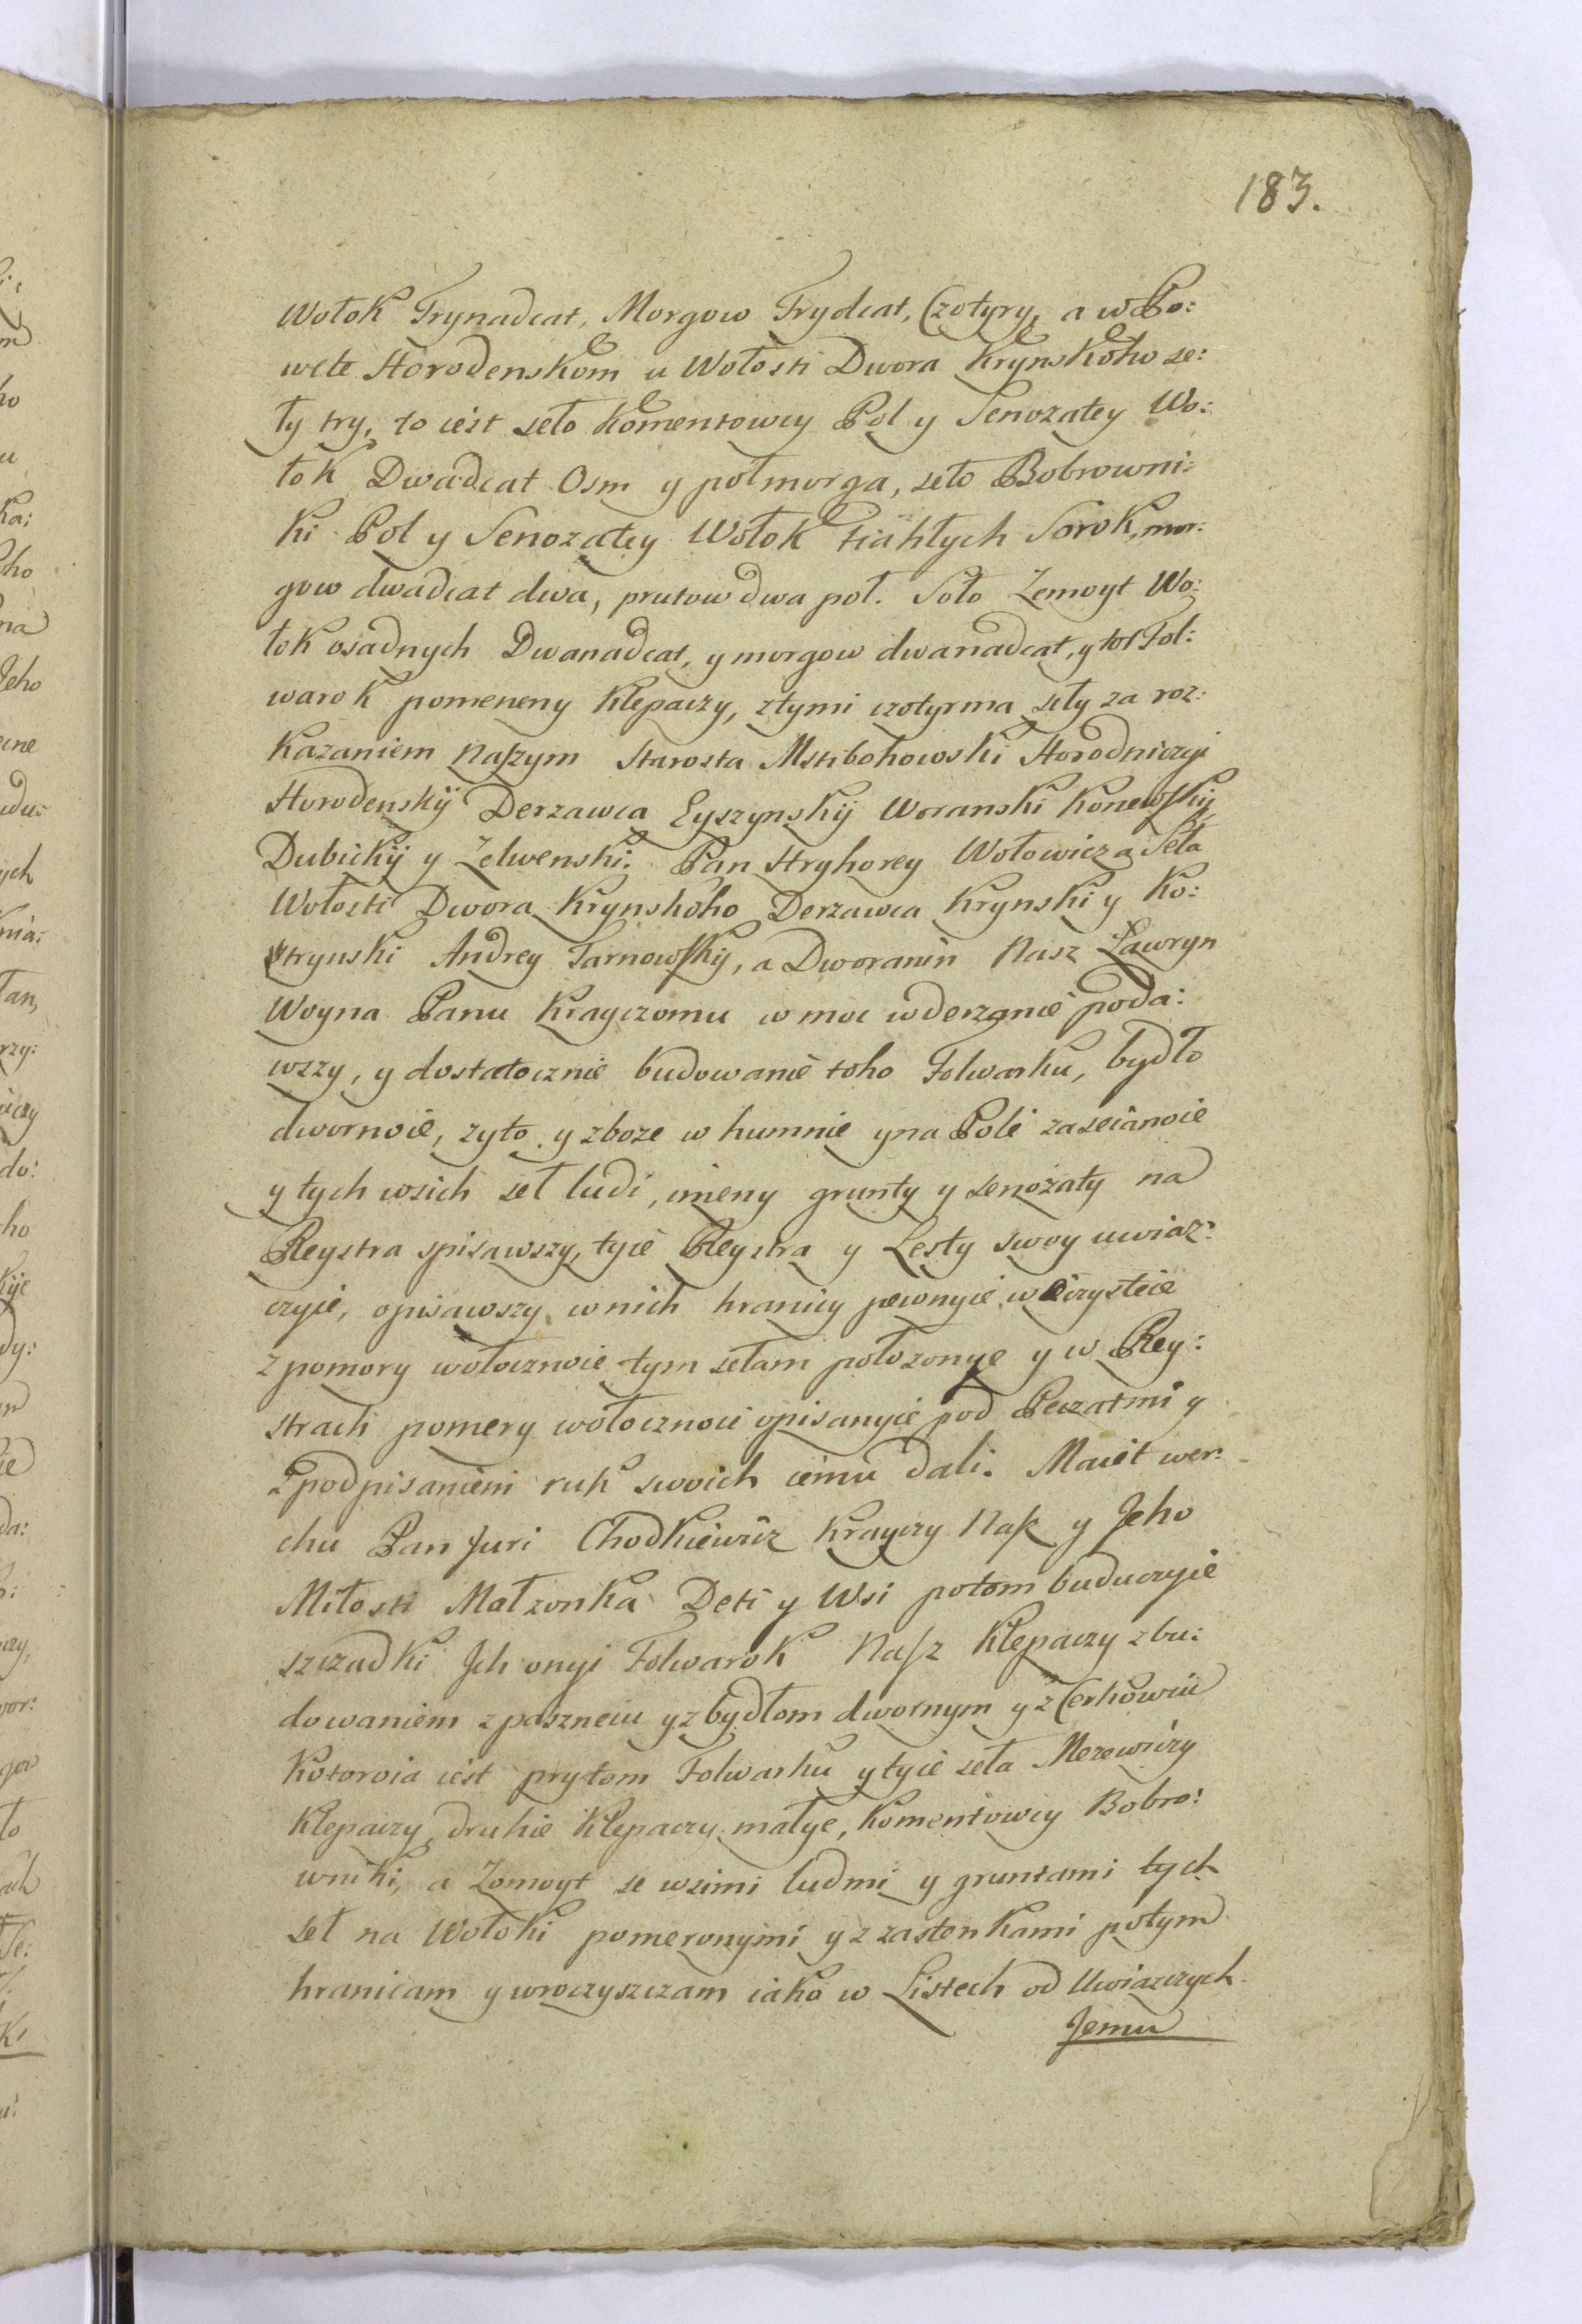 183.
Wołok Trynadcat, Morgow Trydcat, Czotyry, a w Po:
wete Horodenskom u Wołosti Dwora Krynskoho se:
ły try, to iest seło Komentowcy Pol y Senozatey Wo:
łok Dwadcat Osm y połmorga, seło Bobrowni:
ki Pol y Senozatey Wołok tiahłych Sorok, mor:
gow dwadcat dwa, prutow dwa poł. Soło Zemoyt Wo:
łok osadnych Dwanadcat, y morgow dwanadcat, y tot Fol:
warok pomeneny Klepaczy, z tymi czotyrma seły za roz:
kazaniem naszym Starosta Mstibohowski Horodniczyi
Horodenskij Derzawca Łyszynskij Woranski Koniewskij
Dubickij y Zelwenski. Pan Hryhorey Wołowicz a Seła
Wołosti Dwora Krynskoho Derzawca Krynski y Ko:
trynski Andrey Tarnowskij, a Dworanin Nasz Ławryn
Woyna Panu Krayczomu w moc w derzanie poda:
wszy, y dostatocznie budowanie toho Folwarku, bydło
dwornoie, zyto y zboze w humnie y na Poli zaseianoie
y tych wsich seł ludi, imeny grunty y senozaty na
Reystra spisawszy, tyie Reystra y Lesty swoy uwiaz:
czyie, opisawszy w nich hranicy pewnyie weczysteie
z pomory wołocznoie tym sełam położonye y w Rey:
strach pomery wołocznoie opisanyie pod Peczatmi y
z podpisaniem ruk swoich iemu dali. Maiet wer:
chu Pan Juri Chodkiewicz Krayczy Nasz y Jeho
Miłosti Małzonka Deti y Wsi potom buduczyie
szczadki Jch onyi Folwarok Nasz Klepaczy z bu:
dowaniem z paszneiu y z bydłom dwornym y z Cerkowiu
Kotoroia iest prytom Folwarku y tyie seła Mezewiczy
Klepaczy, druhie Klepaczy małye, Komentowcy Bobro:
wniki, a Zomoyt se wsimi ludmi y gruntami tych
seł na Wołoki pomeronymi y z zastenkami potym
hranicam y wroczyszczam iako w Listech od Uwiazczych
Jemu